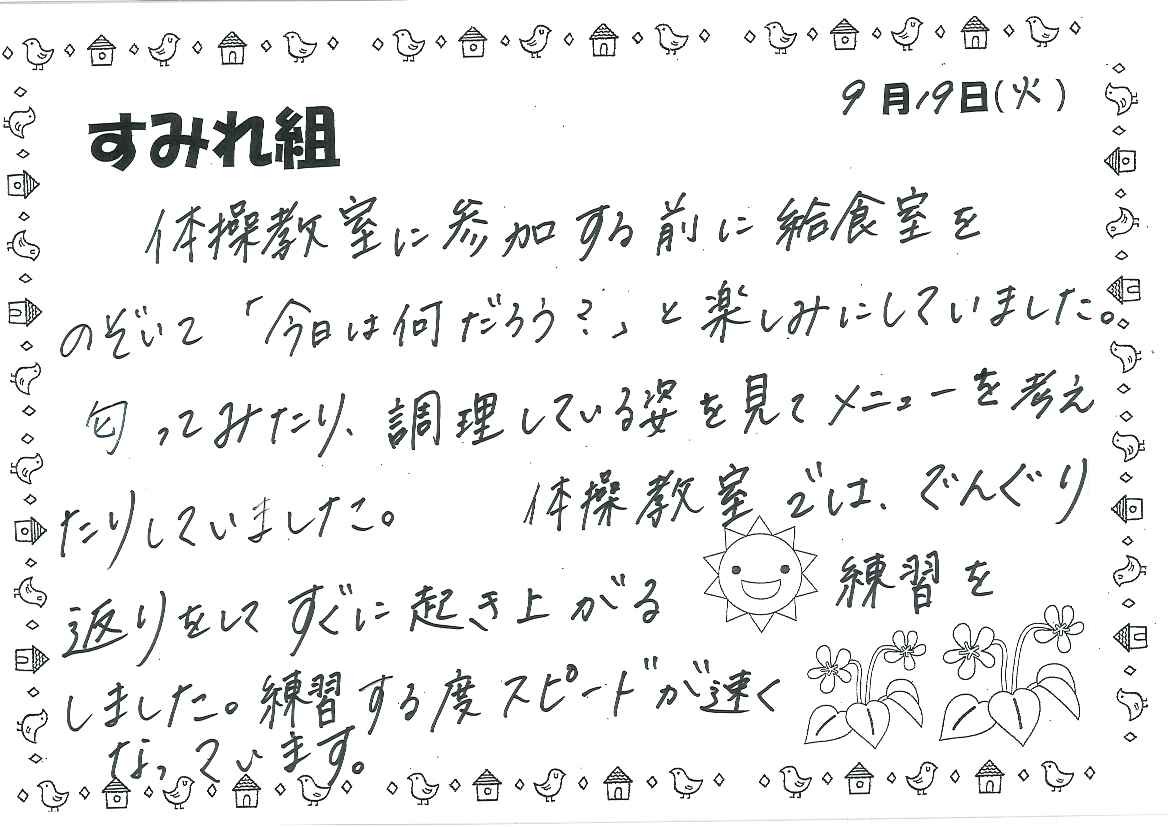 9月19日(火)
すみれ組
体操教室に参加する前に給食室を
のぞいて「今日は何だろう？」と楽しみにしていました。
匂ってみたり、調理している姿を見てメニューを考え
たりしていました。 体操教室では、ぐんぐり
返りをしてすぐに起き上がる 練習を
しました。練習する度スピードが速く
なっています。